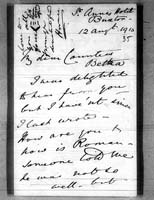 St Annes Hotel
Buxton
12 Augt 1910
35
My dear Countess
Betka
I was delighted
to hear from you
but I have not since
I last wrote –
How are you &
how is Roman –
someone told me
he was not so
well – but –